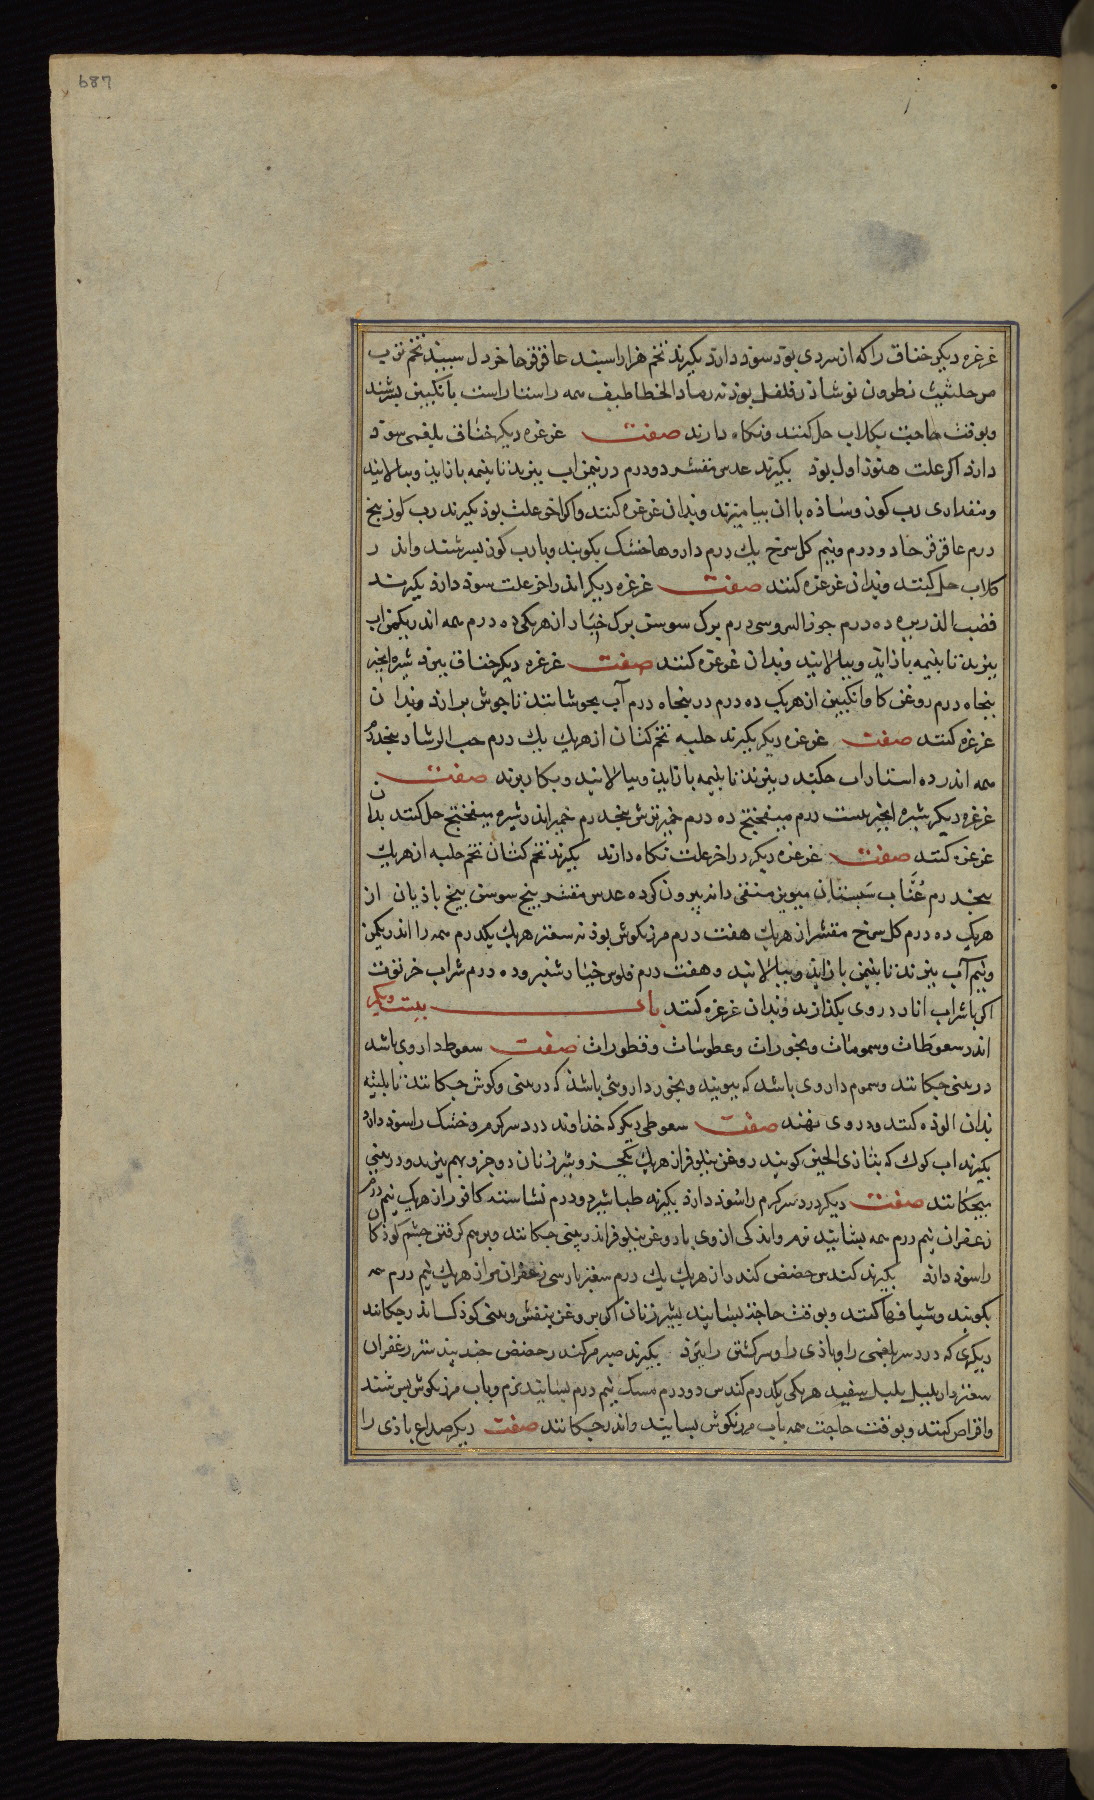 687
غرغره دیکر خناق را که از سردی بوذ سوذ دارذ بکیرند تخم هزاراسبند عاقرقرحا خردل سبید تخم ترب
مر حلتیت نطرون نوشاذر فلفل بوذنه رماد الخطاطیف همه راستاراست بانکبین بسرشند
وبوقت حاجت بکلاب حل کنند ونکاه دارند صفت غرغره دیکر خناق بلغمی سوذ
دارذ اکر علت هنوز اول بوذ بکیرند عدس مقشر دودرم در نیمن اب ببزند تا بنیمه بازاید وببالایند
ومقداری رب کوز وساذه با ان بیامیزند وبدان غرغره کنند واکر اخر علت بوذ بکیرند رب کوز بنج
درم عاقرقرحا دودرم ونیم کل سرخ یك درم داروها خشك بکوبند وبارب کوز بسرشند واندر
کلاب حل کنند وبدان غرغره کنند صفت غرغره دیکر اندر اخر علت سوذ دارذ بکیرند
قصب الذریره ده درم جوز السرو سی درم برك سوسن برك خیار از هر یکی ده درم همه اندر یکمن اب
ببزند تا بنیمه بازاید وببالایند وبدان غرغره کنند صفت غرغره دیکر خناق ببزد شیره انجیر
بنجاه درم روغن کاو انکبین از هریك ده درم در بنجاه درم آب بجوشانند تا جوش برارد وبدان
غرغره کنند صفت غرغره دیکر بکیرند حلبه تخم کتان از هریك یك درم حب الرشاد بنجدرم
همه اندر ده استار اب حکند وببزند تا بنیمه بازاید وببالایند وبکار برند صفت
غرغره دیکر شیره انجیر بیست درم میبفختج ده درم خمیر ترش بنجدرم خمیر اندر شیره میبفختج حل کنند بدان
غرغره کنند صفت غرغره دیکر در اخر علت نکاه دارند بکیرند تخم کتان تخم حلبه از هریك
بنجدرم عُنّاب سبستان میویز منقی دانه بیرون کرده عدس مقشر بیخ سوسن بیخ باذیان از
هریك ده درم کل سرخ مقشر از هریك هفت درم مرزنکوش بوذنه سعتر هریك یکدرم همه را اندر یکمن
ونیم آب ببزند تا بنیمن بازاید وببالایند وهفت درم فلوس خیارشنبر وده درم شراب خرتوت
اکر باشراب انار در روی بکذازند وبدان غرغره کنند باب بیست ویکم
اندر سعوطات وسمومات وبخورات وعطوسات وقطورات صفت سعوط داروی باشد
در بینی جکانند وسموم داروی باشد که ببویند وبخور داروئی باشد که در بینی وکوش جکانند تا بلیته
بدان الوذه کنند ودروی نهند صفت سعوطی دیکر که خذاوند درد سر کرم وخشك را سوذ دارد
بکیرند اب کوك که بتازی الخس کویند روغن نیلوفر از هریك یکجزو شیر زنان دوجزو بهم بزنند ودر بینی
بیجکانند صفت دیکر درد سر کرم را سوذ دارذ بکیرند طباشیر دودرم نشاسته کافور از هریك نیم درم
زعفران نیم درم همه بسایند نرم واندکی از وی باروغن نیلوفر اندر بینی جکانند وبرهم کرفتن جشم کوذکان
را سوذ دارذ بکیرند کندس حضض کندر از هریك یك درم سغبر بارسی زعفران مر از هریك نیم درم همه
بکوبند وشیافها کنند وبوقت حاجت بسایند بشیر زنان اکر بروغن بنفش وبینی کوذکان اندر جکانند
دیکری که درد سر بلغمی را وباذی را وسر کشتن را ببرذ بکیرند صبر مر کندر حضض جندبیدستر زعفران
سعتر داربلبل بلبل سفید هریکی یکدرم کندس دودرم مسك نیم درم بسایند نرم وباب مرزنکوش بسرشند
واقراص کنند وبوقت حاجت همه باب مرزنکوش بسایند واندر جکانند صفت دیکر صداع باذی را